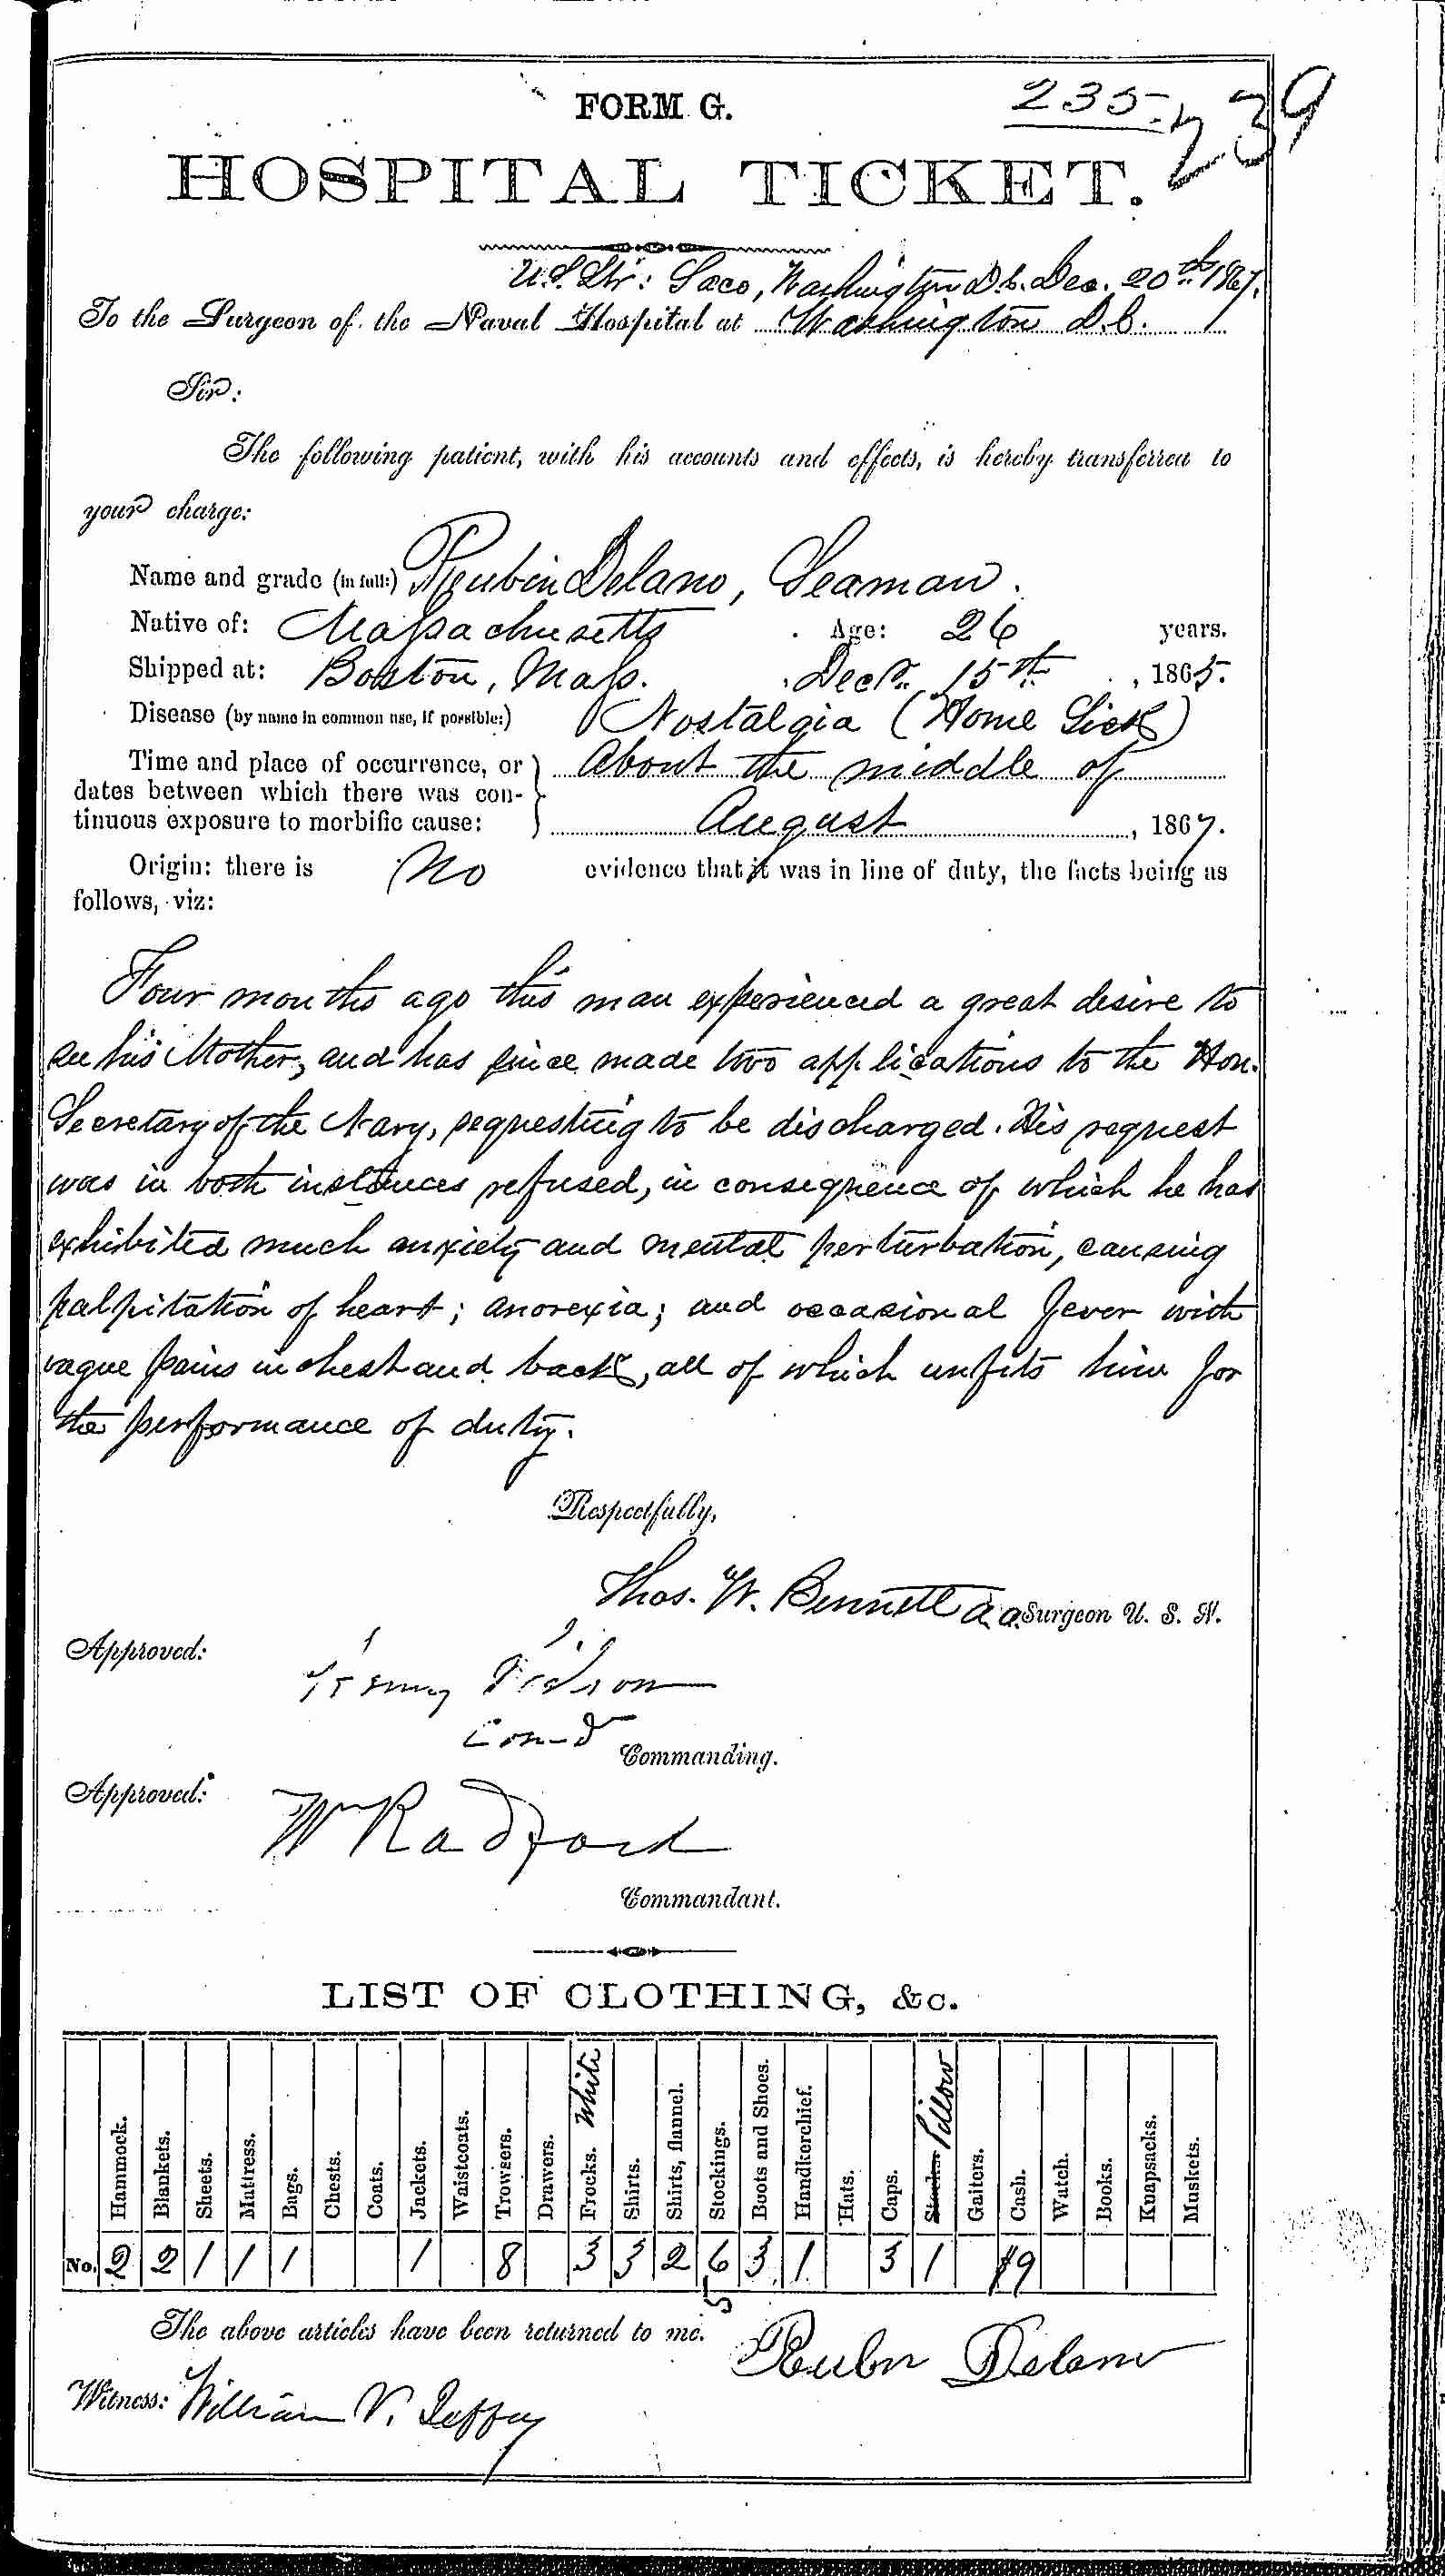 FORM G.
235
239
HOSPITAL TICKET.
U.S. Str: Saco, Washington D.C. Dec. 20th 1867.
To the Surgeon of the Naval Hospital at Washington D.C.
Sir:
The following patient, with his accounts and effects, is hereby transferred to
your charge:
Name and grade (in full:) Reubin Delano, Seaman.
Native of: Massachusetts Age: 26 years.
Shipped at: Boston, Mass. Decr. 15th, 1865.
Disease (by name in common use, if possible:) Nostalgia (Home Sick)
Time and place of occurrence, or About the middle of
dates between which there was con-
tinuous exposure to morbific cause: August, 1867.
Origin: there is no evidence that it was in line of duty, the facts being as
follows, viz:
Four months ago this man experienced a great desire to
see his Mother, and has since made two applications to the Hon.
Secretary of the Navy, requesting to be discharged. His request
was in both instances refused, in consequence of which he has
exhibited much anxiety and mental perturbation, causing
palpitation of heart; anorexia; and occasional fever with
vague pains in chest and back, all of which unfits him for
the performance of duty.
Respectfully,
Thos. W. Bennett a.a. Surgeon U. S. N.
Approved:
Comd
Commanding.
Approved:
Wm Radford
Commandant.
LIST OF CLOTHING, &c.
Hammock. Blankets. Sheets. Mattress. Bags. Chests. Coats. Jackets. Waistcoats. Trowsers. Drawers. Frocks. White Shirts. Shirts, flannel. Stockings. Boots and Shoes. Handkerchief. Hats. Caps. Stocks. Pillow Gaiters. Cash. Watch. Books. Knapsacks. Muskets.
No. 2 2 1 1 1 1 8 3 3 2 6 3 1 3 1 $9
5
The above articles have been returned to me.
Reubn Delano
Witness: William V.